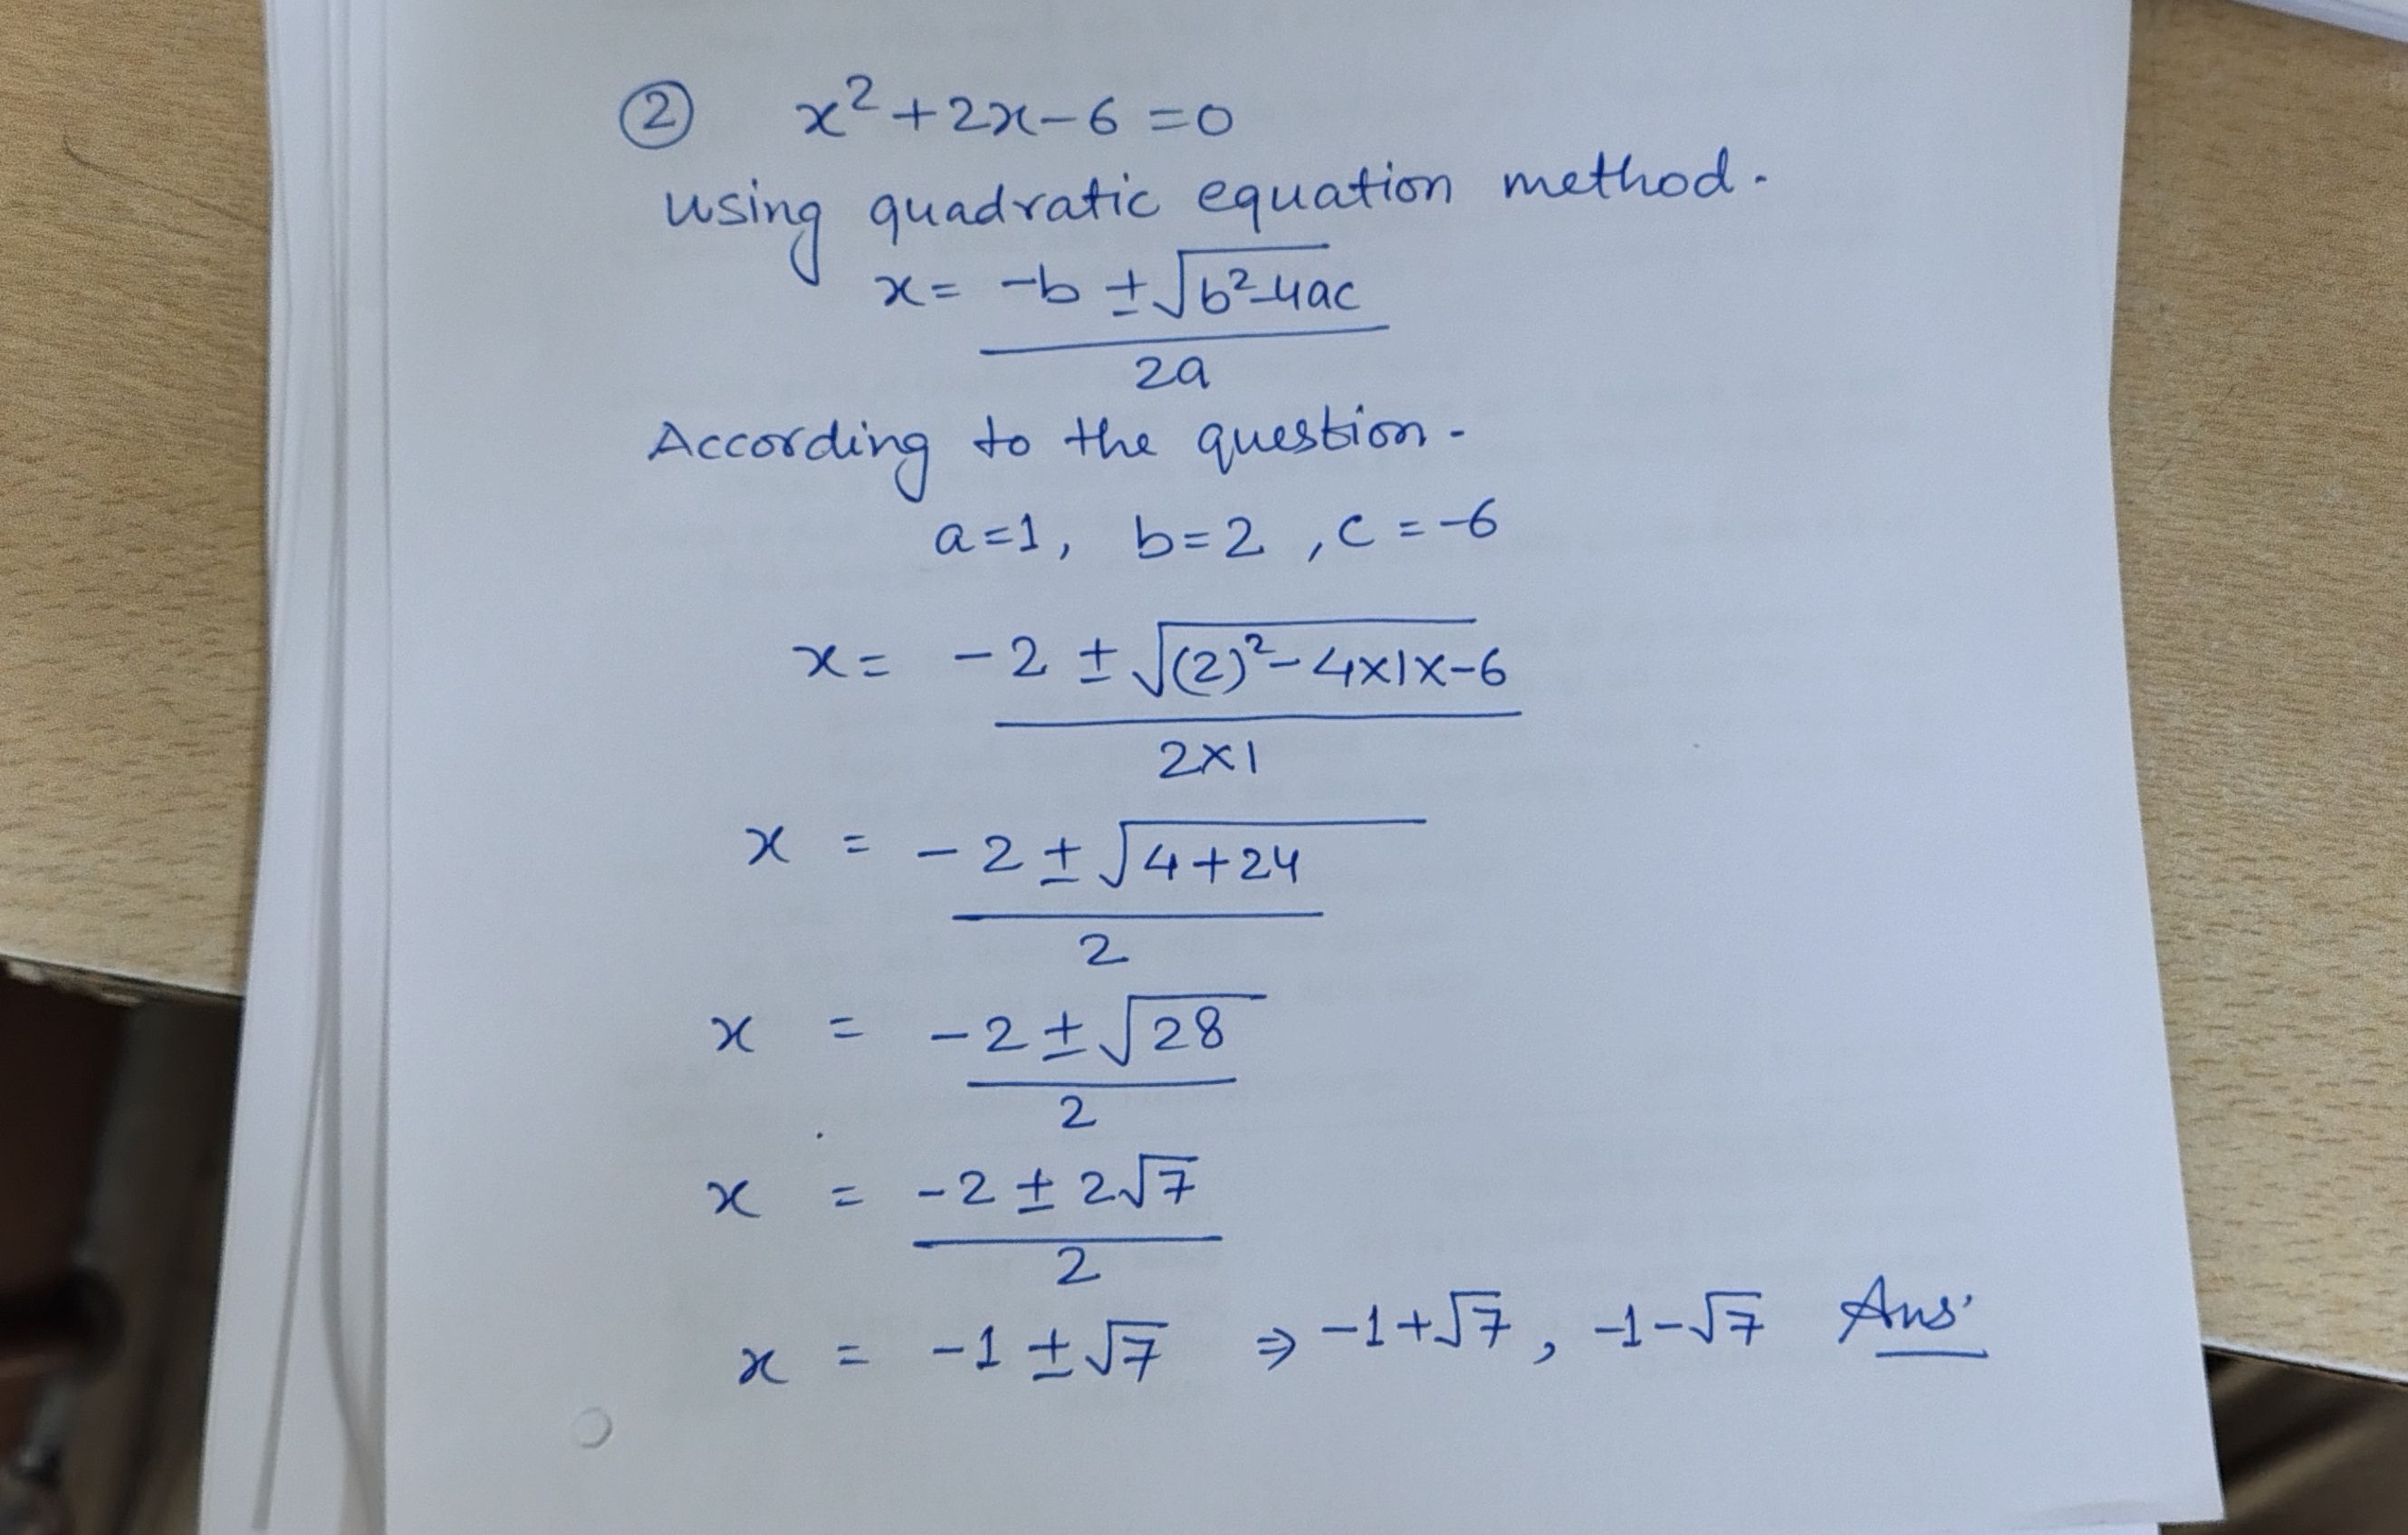 ② x²+2x-6=0
using quadratic equation method.
x= -b ±√b²-4ac
2a
According to the question-
a=1, b=2, c=-6
x= -2 ± √(2)²-4x1x-6
2x1
x = -2±√4+24
2
x = -2±√28
2
x = -2±2√7
2
x = -1±√7 ⇒ -1+√7, -1-√7 Ans